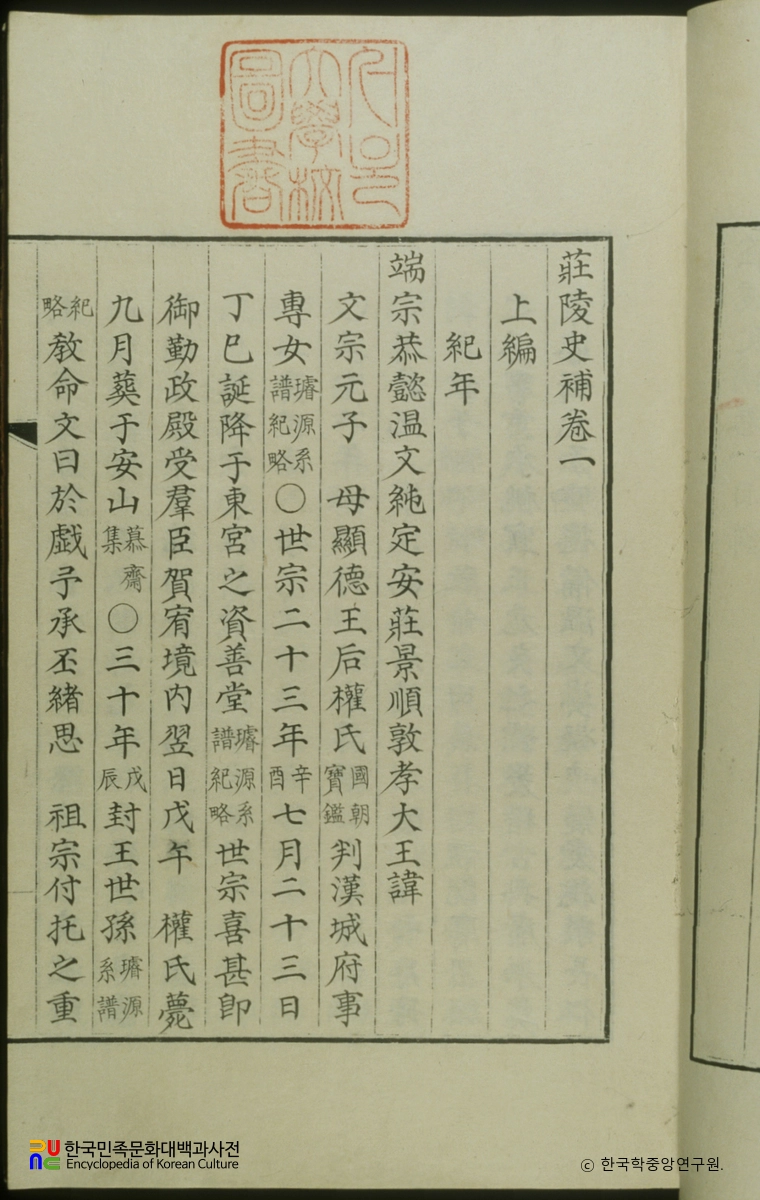 서울大學校圖書
莊陵史補卷一
上編
紀年
端宗恭懿溫文純定安莊景順敦孝大王諱
文宗元子 母顯德王后權氏國朝寶鑑判漢城府事
專女璿源系譜紀略○世宗二十三年辛酉七月二十三日
丁巳誕降于東宮之資善堂璿源系譜紀略世宗喜甚卽
御勤政殿受羣臣賀宥境內翌日戊午 權氏薨
九月葬于安山慕齋集○三十年戊辰封王世孫璿源系譜
紀略教命文曰於戲予承丕緒思 祖宗付托之重
한국민족문화대백과사전
Encyclopedia of Korean Culture
ⓒ 한국학중앙연구원.